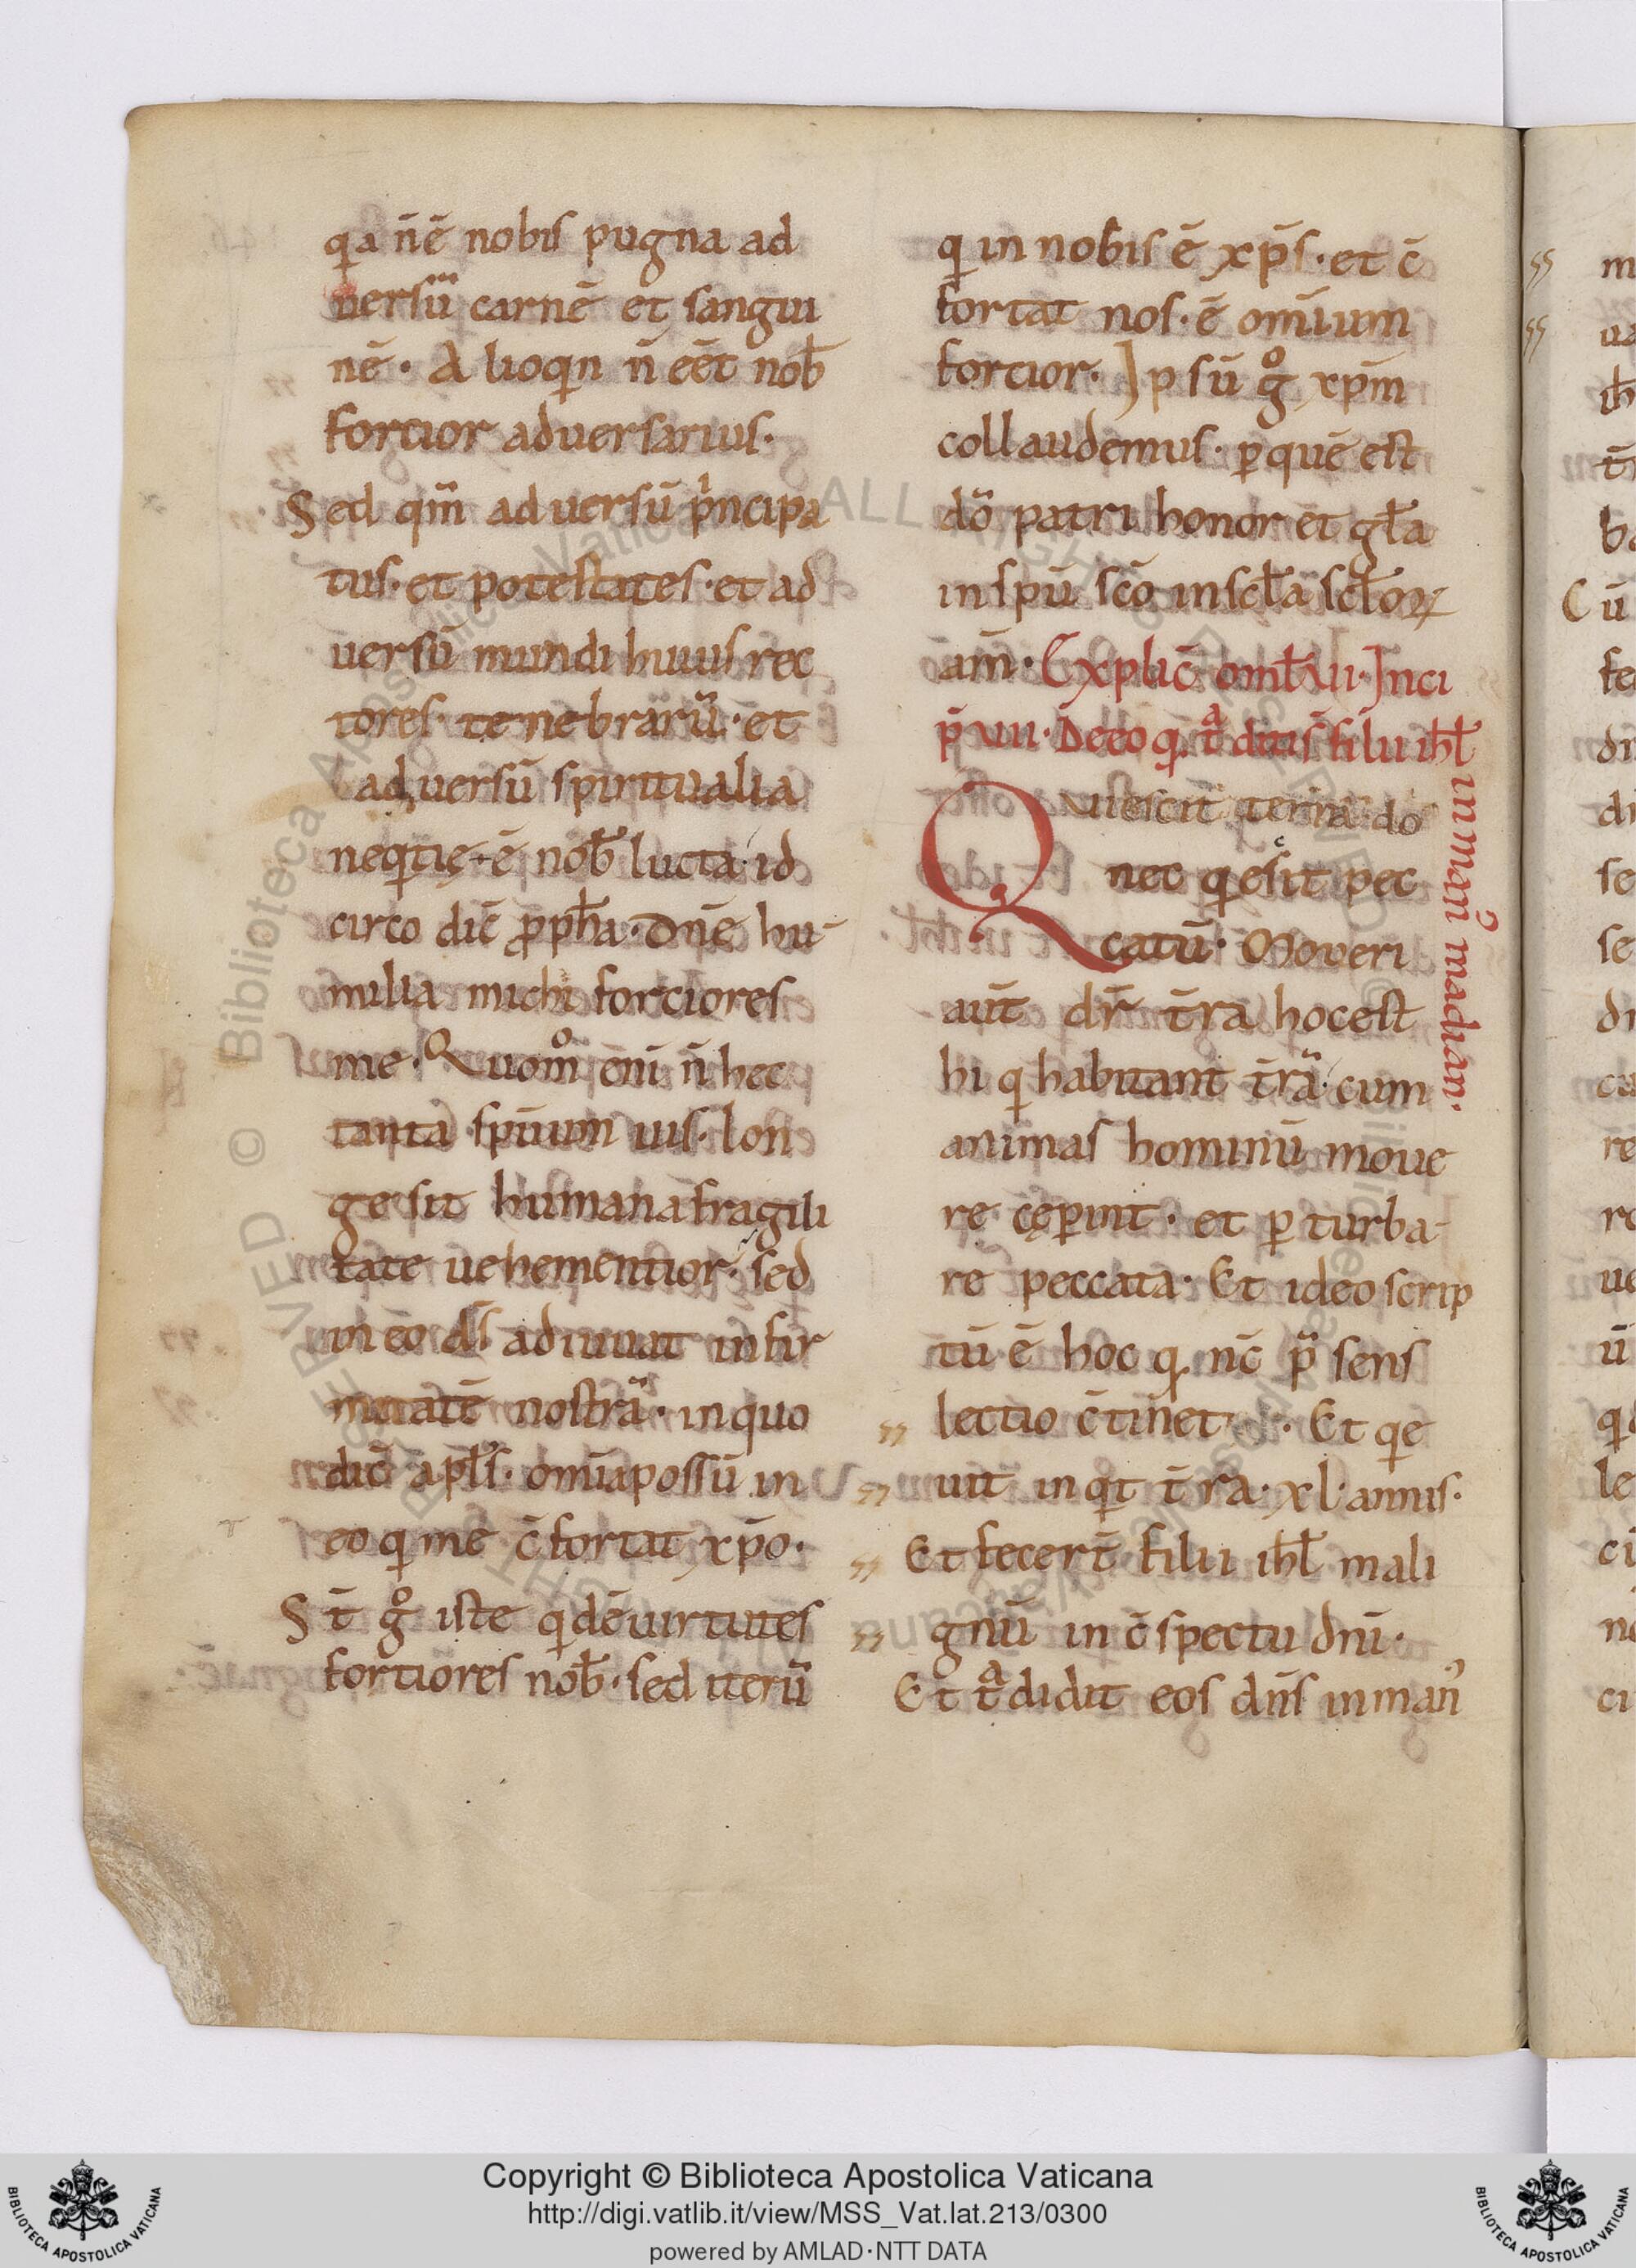 qa n̄ ē nobis pugna ad
uersū carnē et sangui
nē· Alioqin n̄ eēt nob̄
fortior aduersarius·
Sed qm̄ aduersū pͥncipa
tus· et potestates· et ad
uersū mundi huius rec
tores· tenebrarū· et
aduersū spiritualia
neqͥtię· ē nob̄ lucta· id
circo dic̄ ꝓph̄a· Dn̄e hu-
milia michi forciores
me· Quom̊ eni n̄ hec
tanta spūum uis· lon
ge sit humana fragili
tate uehementior· sed
in eo ds̄ adiuuat infir
mitatē nostrā· in quo
dic̄ apl̄s· omīa possū in
eo qͥ me c̄fortat xp̄o·
S t̄ g̊ iste qͥdē uirtutes
fortiores nob̄· sed iterū
qͥ in nobis ē xp̄s· et c̄
fortat nos· ē omīum
fortior· Ipsū g̊ xp̄m
collaudemus· ꝑ quē est
dō patri honor et gl̄a
in spū scō in scl̄a scl̄oꝝ
am̄· Explic̄ oml̄ VII· Inci
p̄ VIII· De eo q· tͣditi s̄ filii ihl̄
in man᷒ madian·
Quieuit terra do
nec qͥesͨit pec
catū· Moveri
aūt dr̄ t̄ra hoc est
hi qͥ habitant t̄rā· cum
animas hominū moue
re cęper̄int· et ꝑturba-
re peccata· Et ideo scrip
tū ē hoc q· nc̄ p̄sens
lectio c̄tinet· Et qͥe
uit inqͥt t̄ra· xl· annis·
Et fecer̄t filii ihl̄ mali
gnū in c̄spectu dn̄i·
Et tͣdidit eos dn̄s in man᷒
ALL RIGHTS RESERVED © Biblioteca Apostolica Vaticana
Copyright © Biblioteca Apostolica Vaticana
http://digi.vatlib.it/view/MSS_Vat.lat.213/0300
powered by AMLAD·NTT DATA
BIBLIOTECA APOSTOLICA VATICANA
BIBLIOTECA APOSTOLICA VATICANA